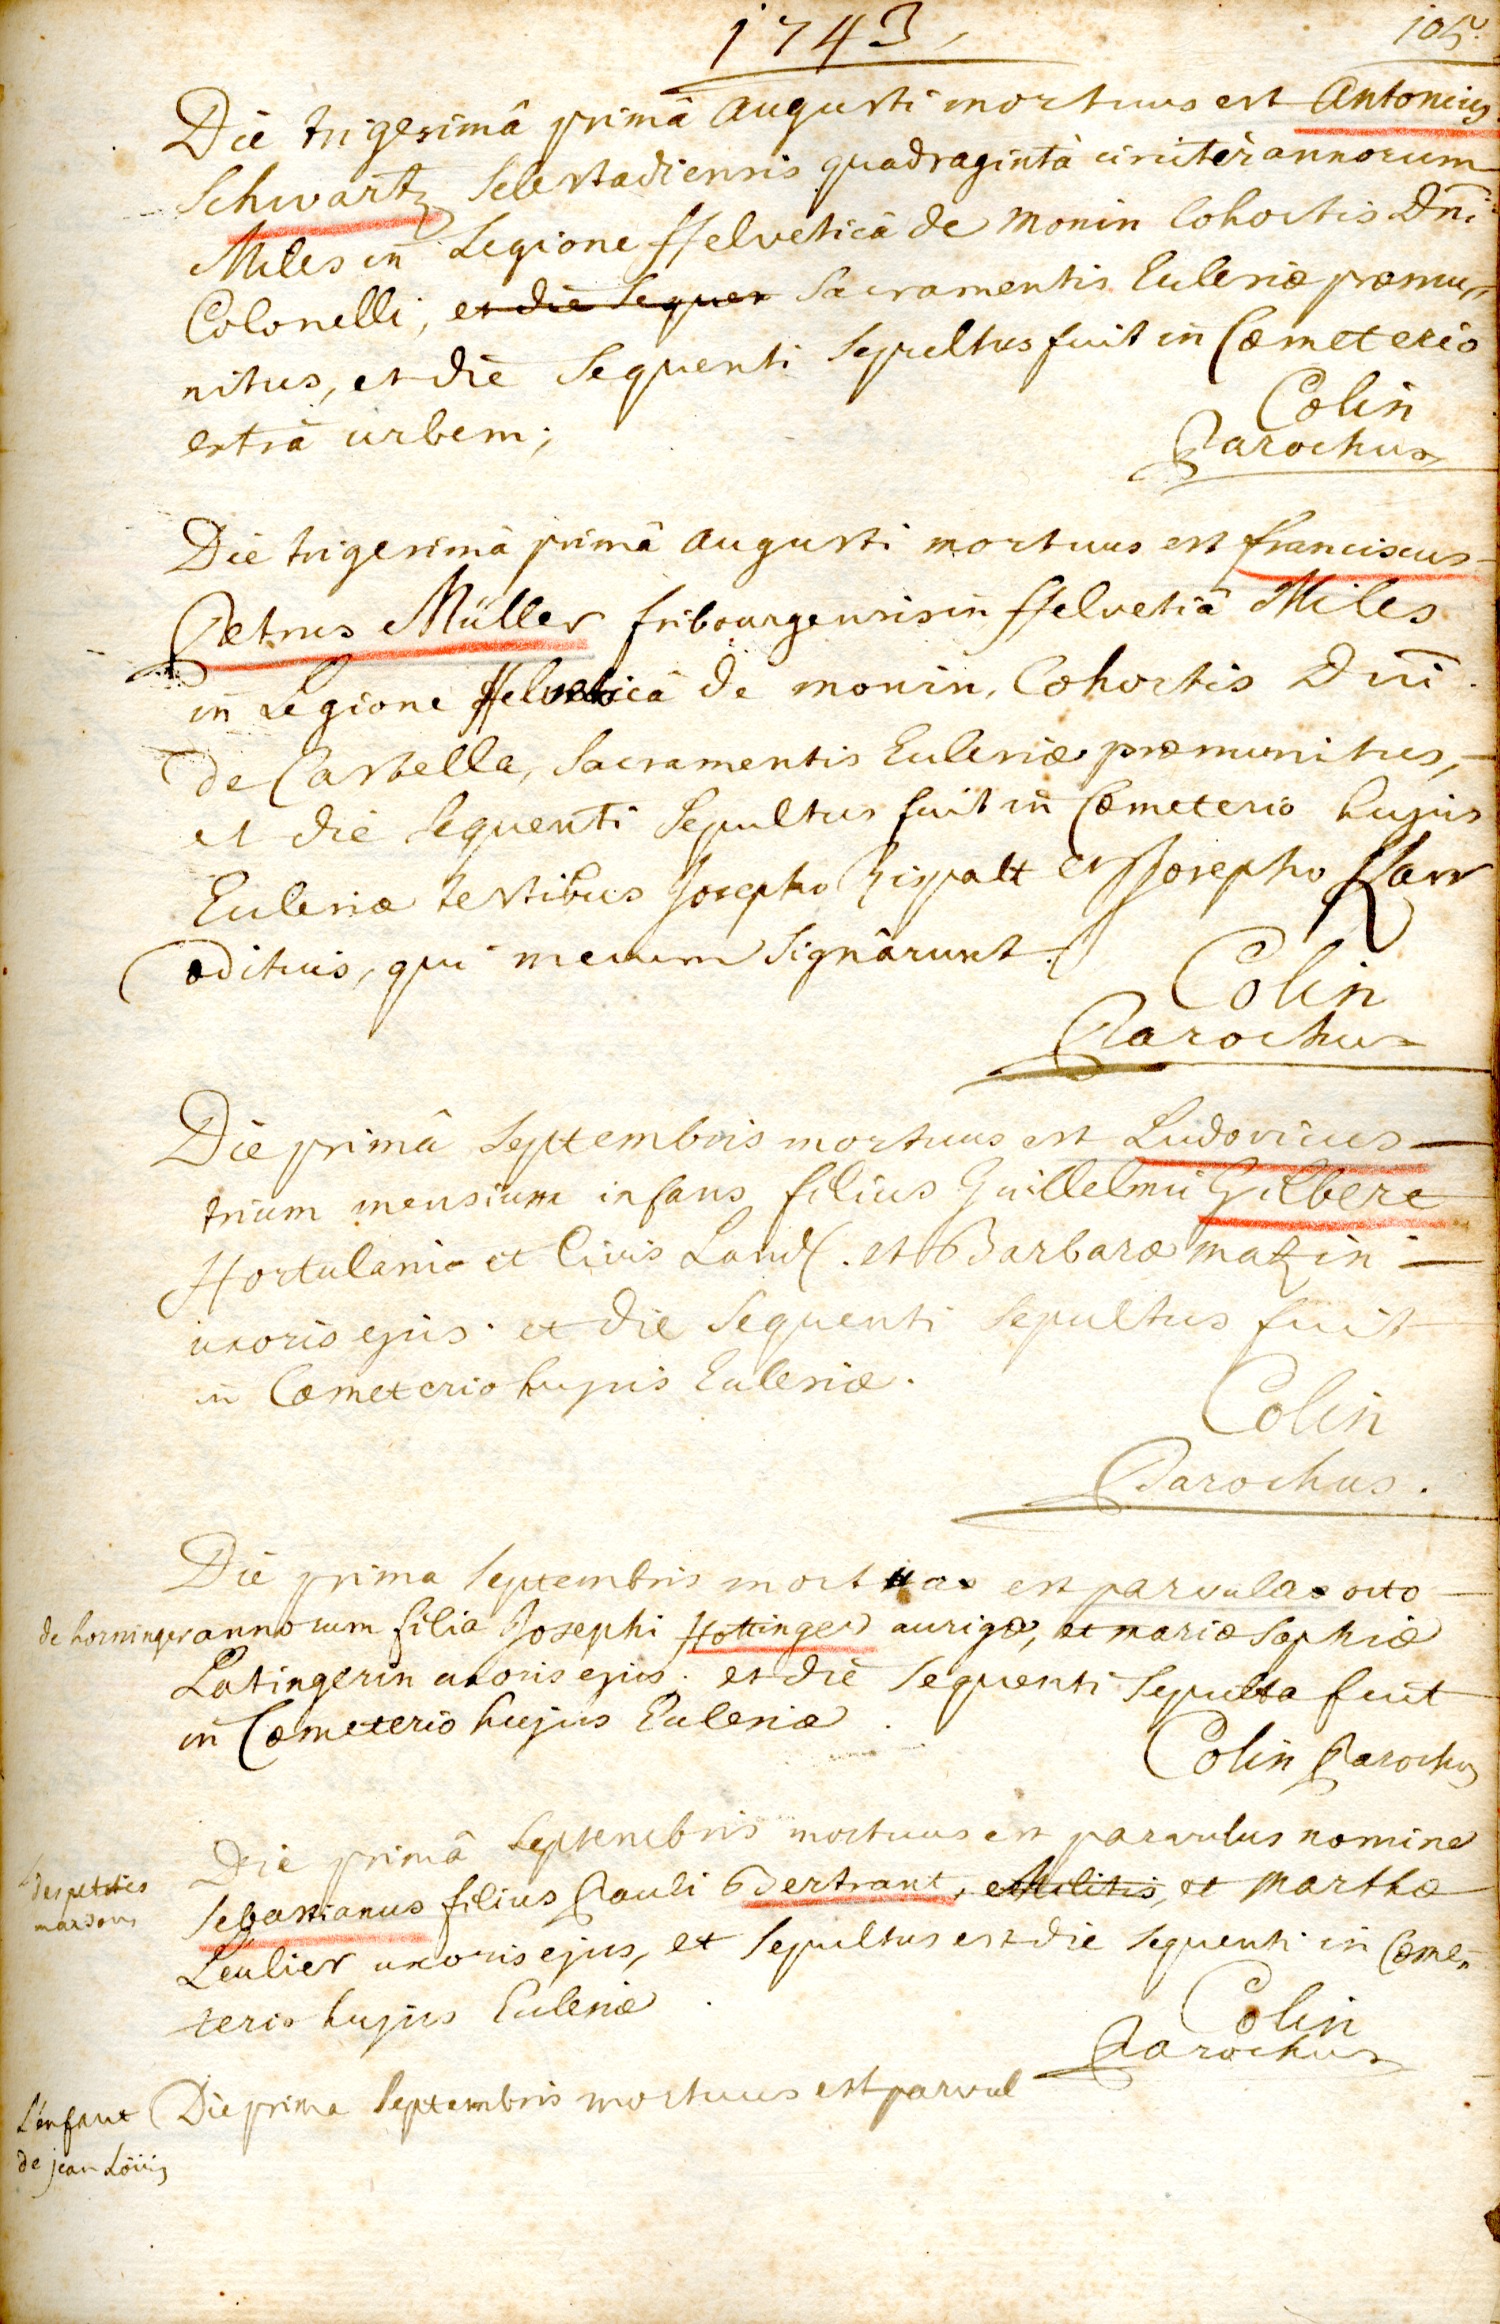 1743
105.
Die trigesimâ primâ augusti mortuus est Antonius
Schwartz Selestadiensis quadragintà circitèr annorum
Miles in Legione Helveticâ de Monin Cohortis Dni
Colonelli, et die sequen Sacramentis Ecclesiæ præmu-
nitus, et die sequenti sepultus fuit in Cœmeterio
extrà urbem;
Colin
Parochus
Die trigesimâ primâ augusti mortuus est franciscus
Petrus Müller fribourgensis in Helvetiâ Miles
in Legione Helveticâ de monin, Cohortis Dni
de Castella, Sacramentis Ecclesiæ præmunitus,
et die sequenti sepultus fuit in Cœmeterio hujus
Ecclesiæ testibus Josepho et Josepho
ædituis, qui mecum signârunt.
Colin
Parochus
Die primâ septembris mortuus est Ludovicus
trium mensium infans filius Guillelmi Gilbert
Hortulani et Civis Land. et Barbaræ matzin
uxoris ejus. et die sequenti sepultus fuit
in Cœmeterio hujus Ecclesiæ.
Colin
Parochus.
Die prima septembris mortua est parvula octo
de horninger
annorum filia Josephi Hottinger aurigæ, et mariæ Sophiæ
Latingerin uxoris ejus. et die sequenti sepulta fuit
in Cœmeterio hujus Ecclesiæ.
Colin Parochus
Die primâ septembris mortuus est parvulus nomine
des petites
maisons
Sebastianus filius Pauli Bertrant, Militis, et Marthæ
Leulier uxoris ejus, et sepultus est die sequenti in Cœme-
terio hujus Ecclesiæ.
Colin
Parochus
Die prima septembris mortuus est parvul
L'enfant
de jean Loüis